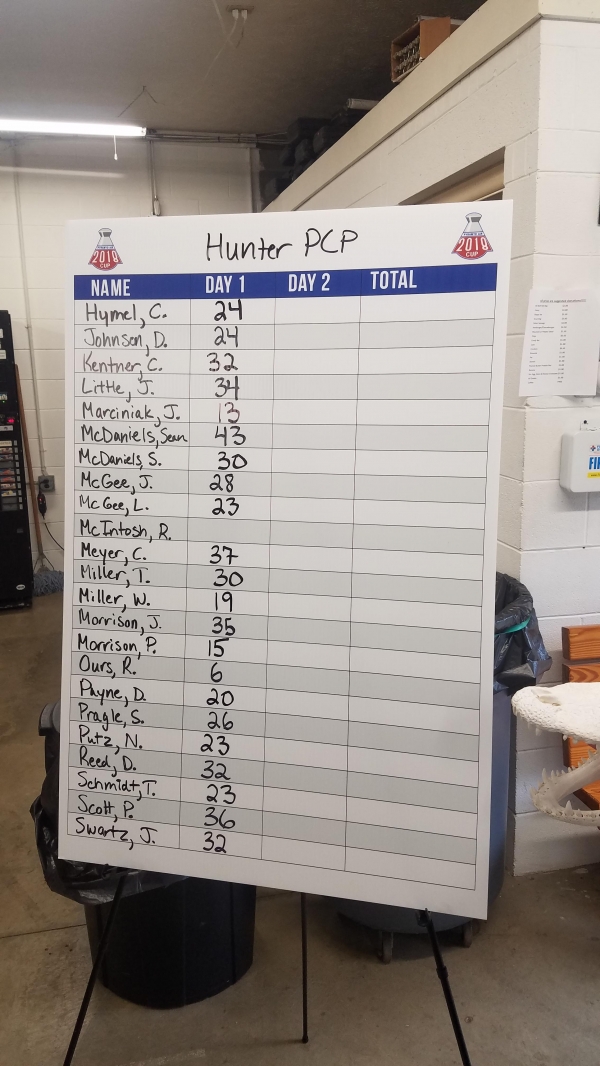 Hunter PCP
2018
CUP
2018
CUP
NAME DAY 1 DAY 2 TOTAL
Hymel, C. 24
Johnson, D. 24
Kentner, C. 32
Little, J. 34
Marciniak, J. 13
McDaniels, Sean 43
McDaniels, S. 30
McGee, J. 28
McGee, L. 23
McIntosh, R.
Meyer, C. 37
Miller, T. 30
Miller, W. 19
Morrison, J. 35
Morrison, P. 15
Ours, R. 6
Payne, D. 20
Pragle, S. 26
Putz, N. 23
Reed, D. 32
Schmidt, T. 23
Scott, P. 36
Swartz, J. 32